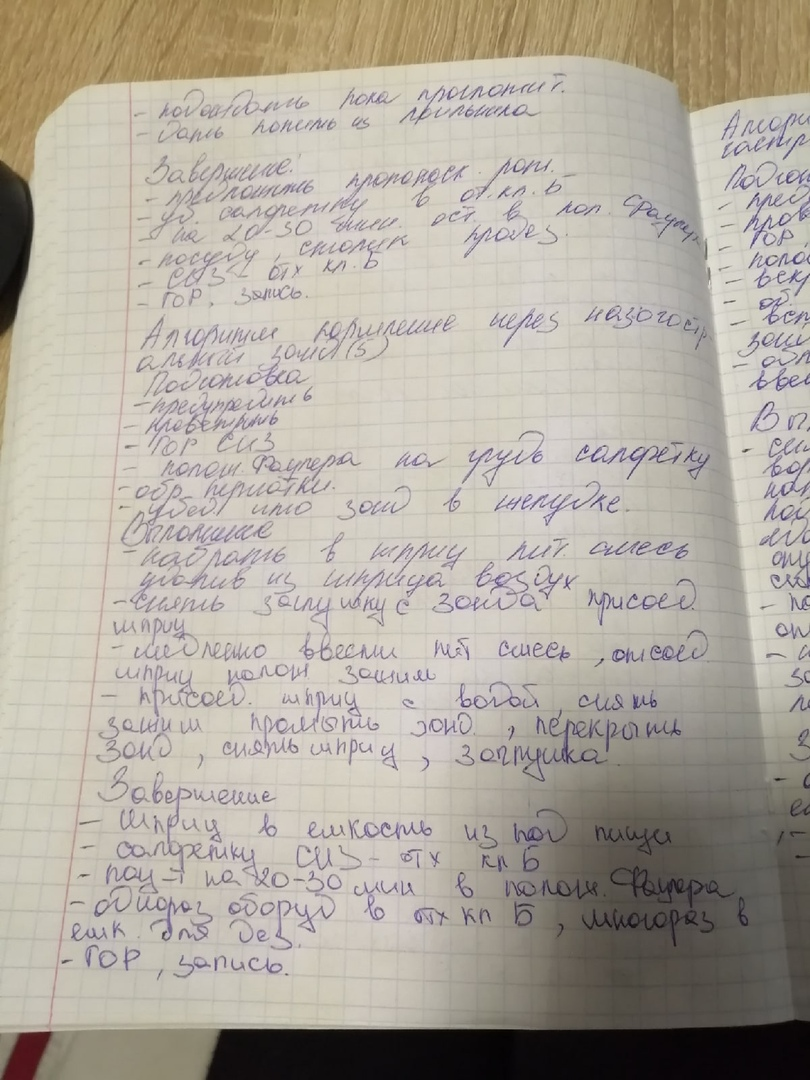 - подождать пока проглотит.
- дать попить из поильника
Завершение:
- предложить прополоск. рот.
- уб. салфетку в от. кл. Б
- на 20-30 мин. ост. в пол. Фаулера
- посуду, столик продез.
- СИЗ - отх кл. Б
- ГОР, запись.
Алгоритм кормление через назогастр
альный зонд (5)
Подготовка
- предупредить
- проветрить
- ГОР СИЗ
- полож. Фаулера на грудь салфетку
- обр. перчатки.
- убед. что зонд в желудке.
Выполнение
- набрать в шприц пит. смесь
удалив из шприца воздух
- снять заглушку с зонда присоед.
шприц
- медленно ввести пит смесь, отсоед.
шприц полож зажим
- присоед. шприц с водой, снять
зажим промыть зонд, перекрыть
зонд, снять шприц, заглушка.
Завершение
- шприц в емкость из под пищи
- салфетку СИЗ - отх кл Б
- пац-т на 20-30 мин в полож. Фаулера
- однораз оборуд в отх кл Б, многораз в
емк. для дез.
- ГОР, запись.
Алгори
гастр
Подгот
- пред
- пров
- ГОР
- поло
- вскр
- об
- вст
зонд
- обл
ввес
Вы